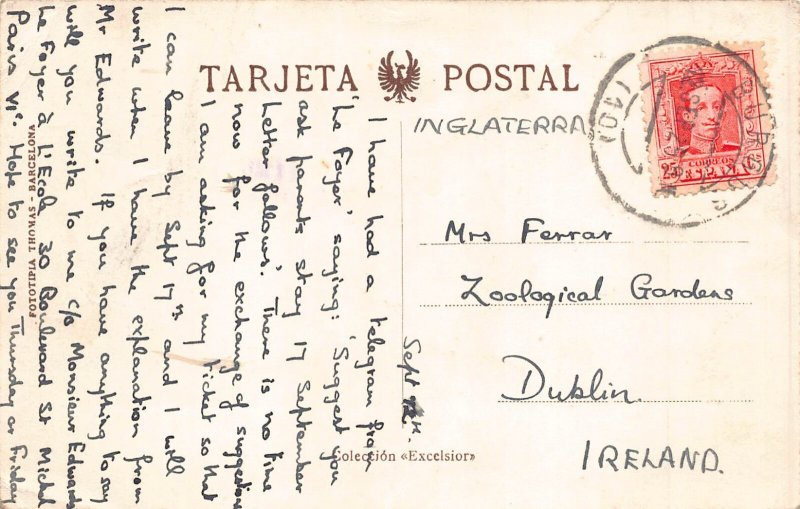 TARJETA POSTAL
INGLATERRA
BURGOS
(10)
CORREOS
ESPAÑA
Sept 12th.
I have had a telegram from
'Le Foyer' saying: 'Suggest you
ask parents stay 17 September
Letter follows'. There is no time
now for the exchange of suggestions
I am asking for my ticket so that
I can leave by Sept 17th and I will
write when I have the explanation from
Mr Edwards. If you have anything to say
will you write to me c/o Monsieur Edwards
Le Foyer à L'Ecole 30 Boulevard St Michel
Paris VIe. Hope to see you Thursday or Friday
Mrs Ferrar
Zoological Gardens
Dublin.
IRELAND.
Colección «Excelsior»
FOTOTIPIA THOMAS - BARCELONA